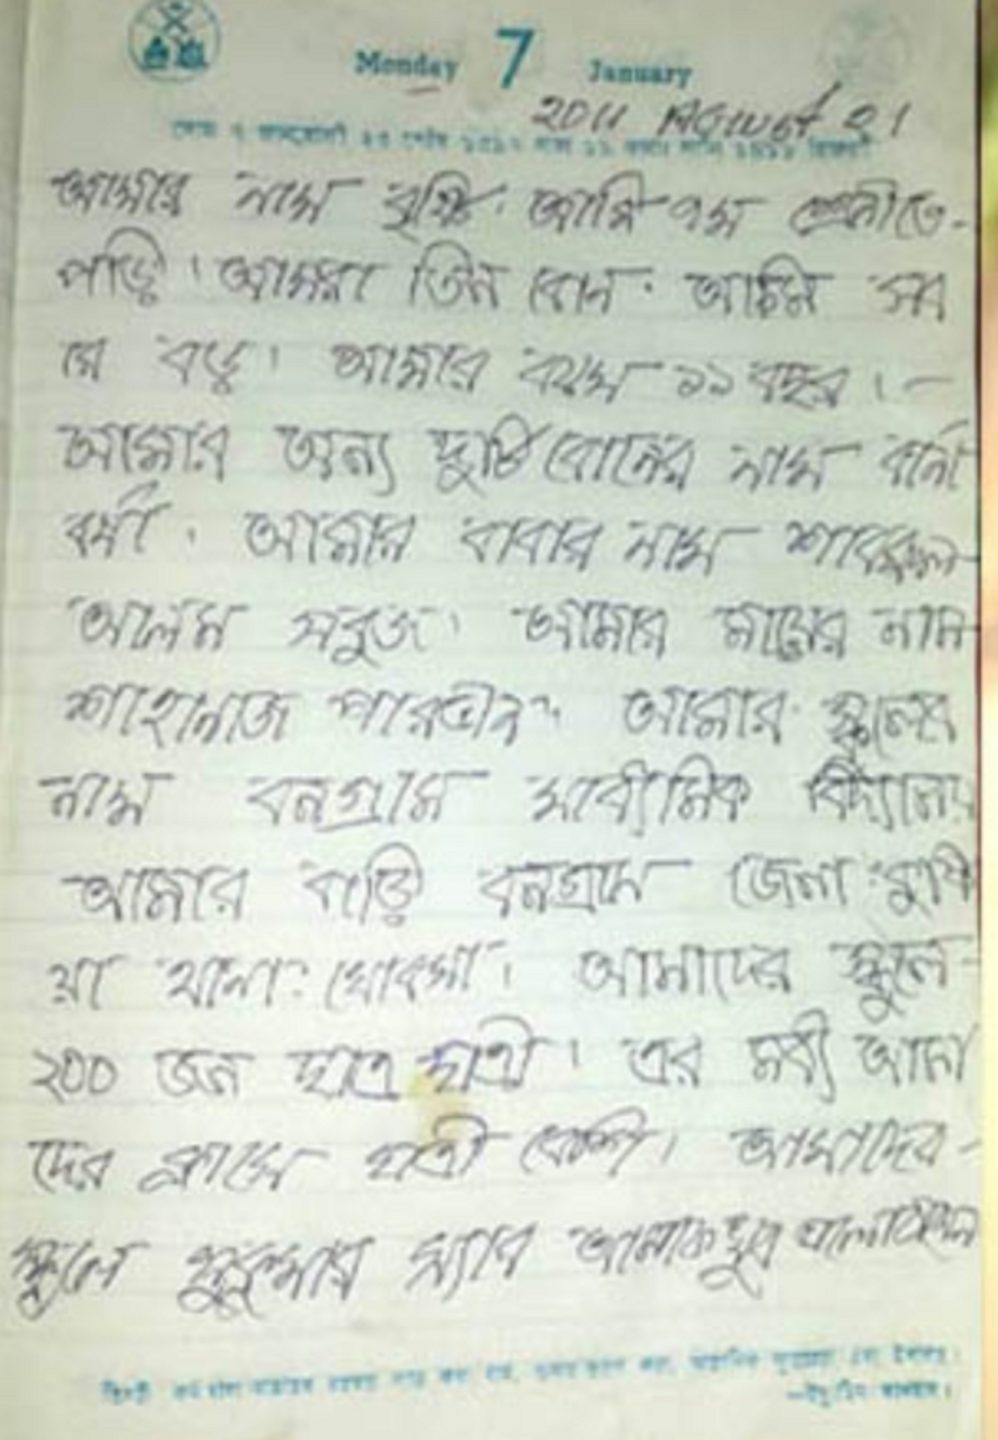 Monday 7 January
2011 August 21
আমার নাম বৃষ্টি। আমি ৭ম শ্রেনীতে-
পড়ি। আমরা তিন বোন। আমি সব
বড়। আমার বয়স ১১ বছর।-
আমার অন্য দুটি বোনের নাম বর্না
বর্ষা। আমার বাবার নাম
আলম সবুজ। আমার মায়ের নাম
শাহানাজ পারভীন। আমার স্কুলের
নাম বনগ্রাম মাধ্যমিক বিদ্যালয়
আমার বাড়ি বনগ্রাম জেলা: কুষ্টি
য়া থানা: খোকসা। আমাদের স্কুলে-
২০০ জন ছাত্র ছাত্রী। এর মধ্য আমা
দের ক্লাসে ছাত্রী বেশি। আমাদের-
স্কুলে সুকুমার স্যার আমাকে খুব